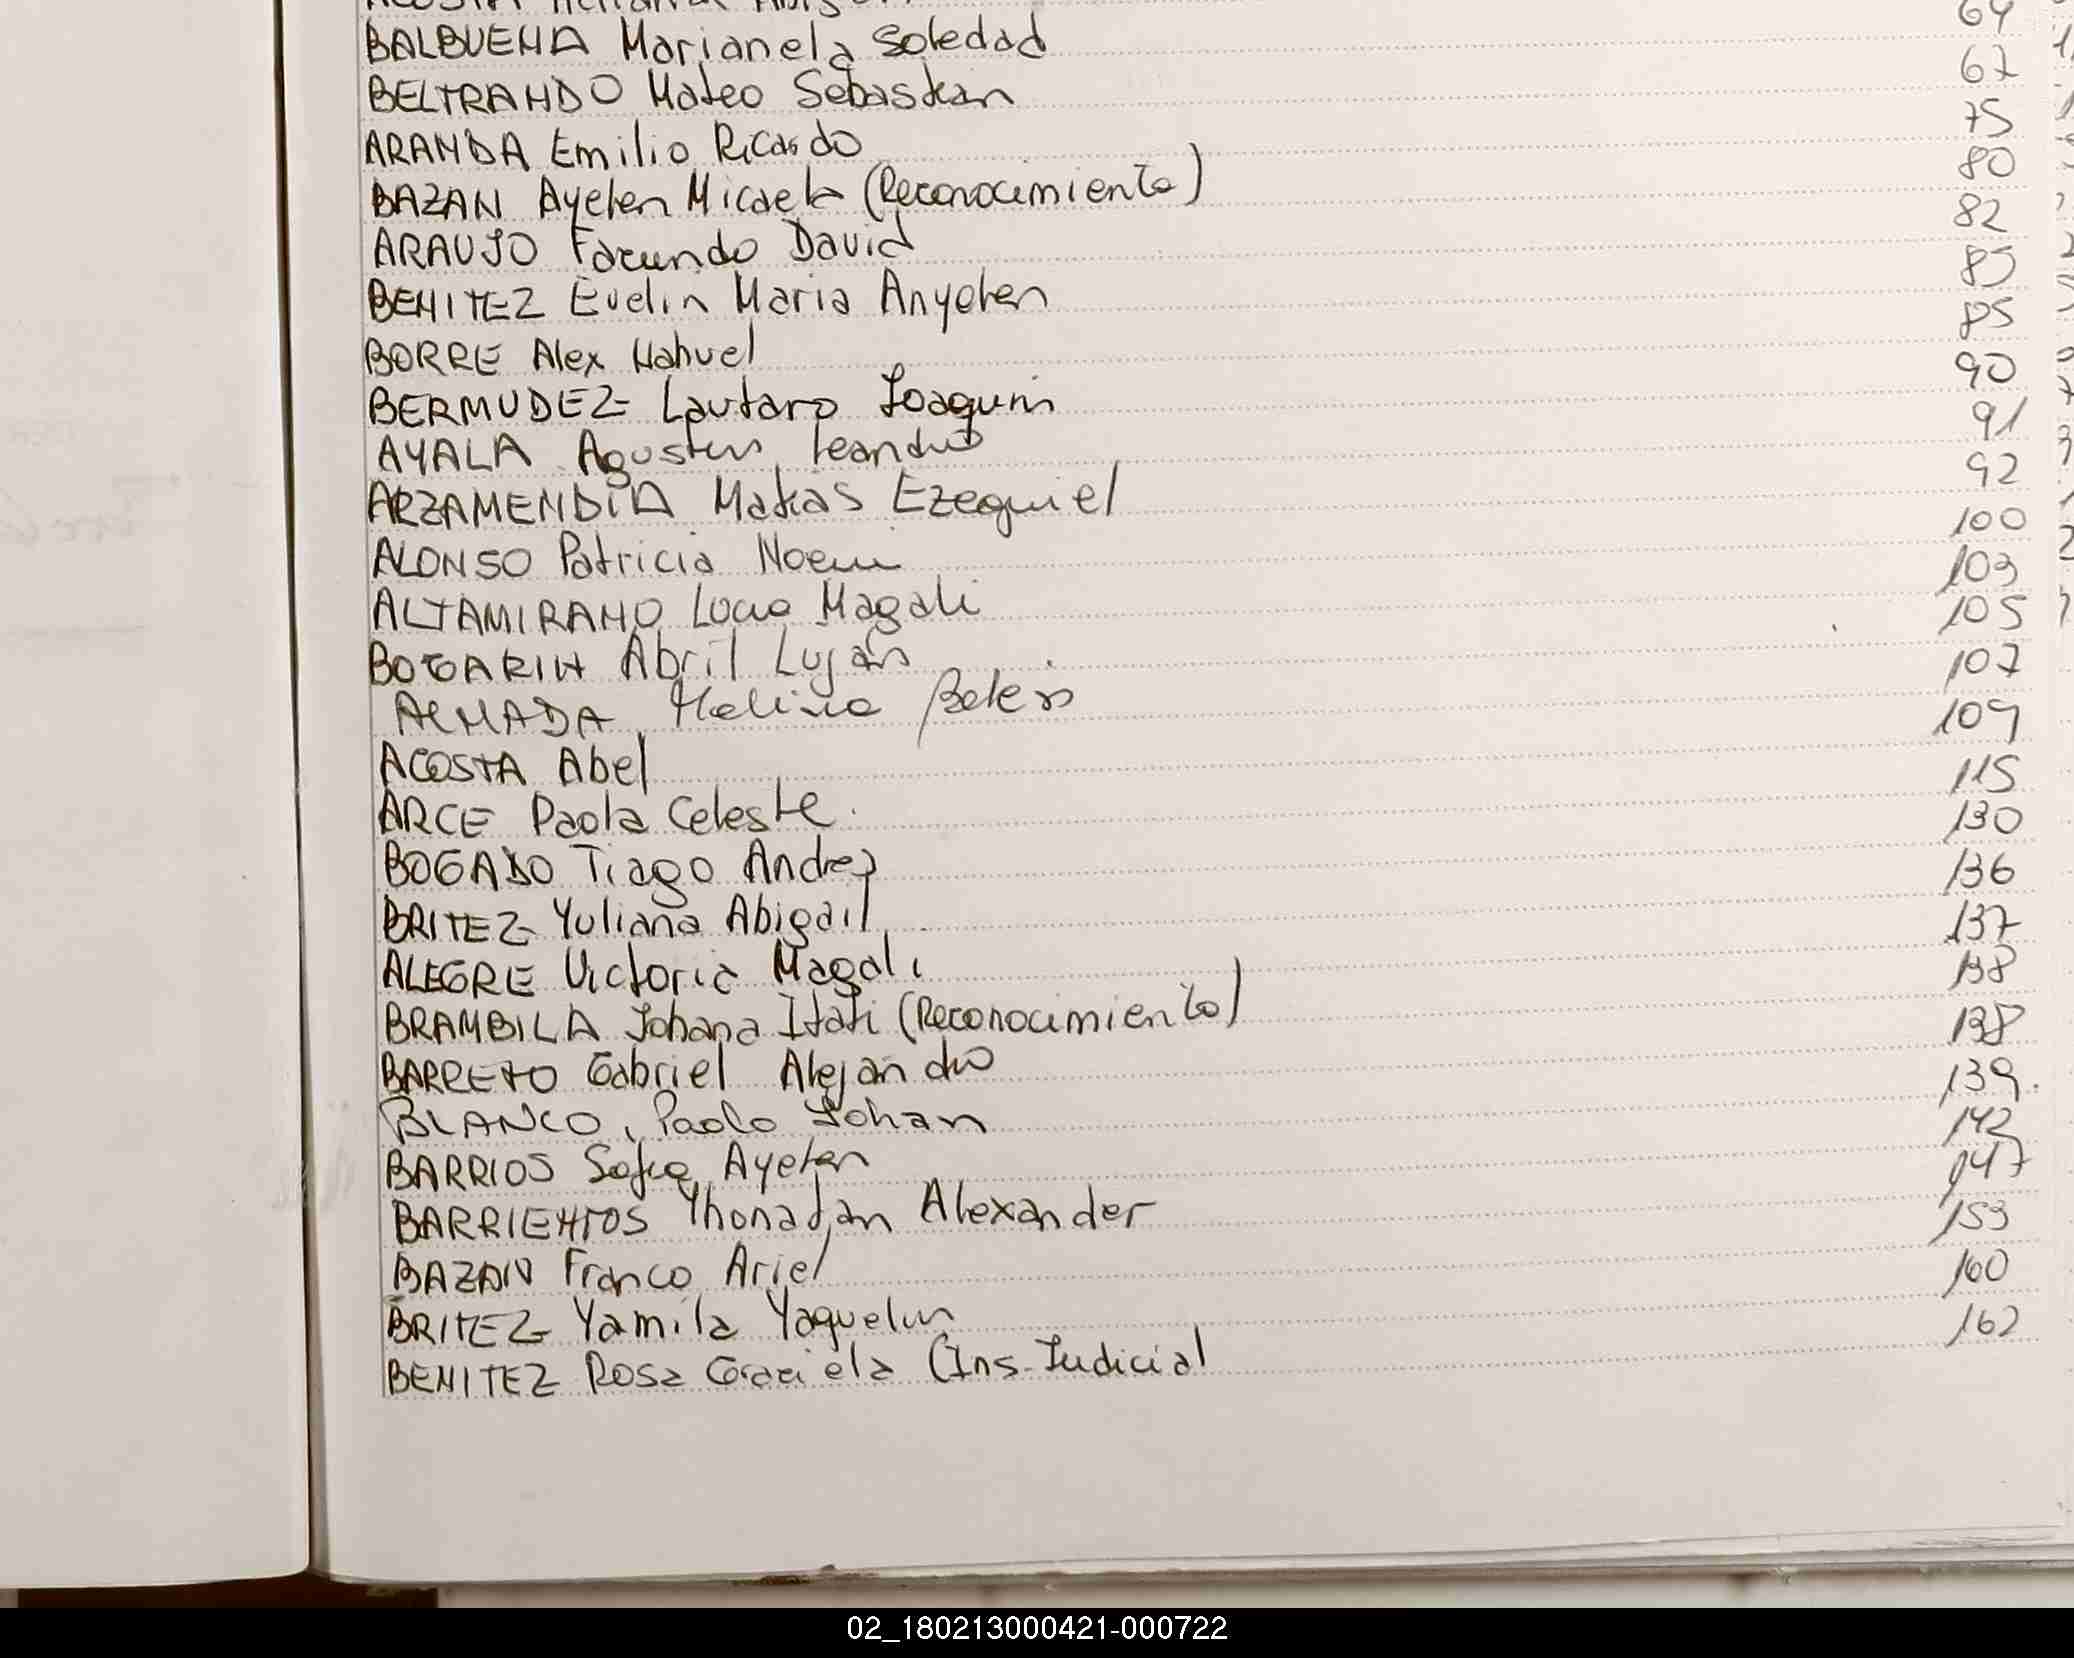 BALBUENA Marianela Soledad 64
BELTRANDO Mateo Sebastian 67
ARANDA Emilio Ricardo 75
BAZAN Ayelen Micaela (Reconocimiento) 80
ARAUJO Facundo David 82
BENITEZ Evelin Maria Anyelen 85
BORRE Alex Nahuel 85
BERMUDEZ Lautaro Joaquin 90
AYALA Agustin Leandro 91
ARZAMENDIA Matias Ezequiel 92
ALONSO Patricia Noemi 100
ALTAMIRANO Lucia Magali 103
BOGARIN Abril Luján 105
ALMADA Melina Belén 107
ACOSTA Abel 109
ARCE Paola Celeste. 115
BOGADO Tiago Andres 130
BRITEZ Yuliana Abigail 136
ALEGRE Victoria Magali 137
BRAMBILA Johana Itati (Reconocimiento) 138
BARRETO Gabriel Alejandro 138
BLANCO, Paolo Johan 139.
BARRIOS Sofia Ayelen 142
BARRIENTOS Yhonatan Alexander 147
BAZAN Franco Ariel 153
BRITEZ Yamila Yaquelin 160
BENITEZ Rosa Graciela (Ins. Judicial 162
02_180213000421-000722